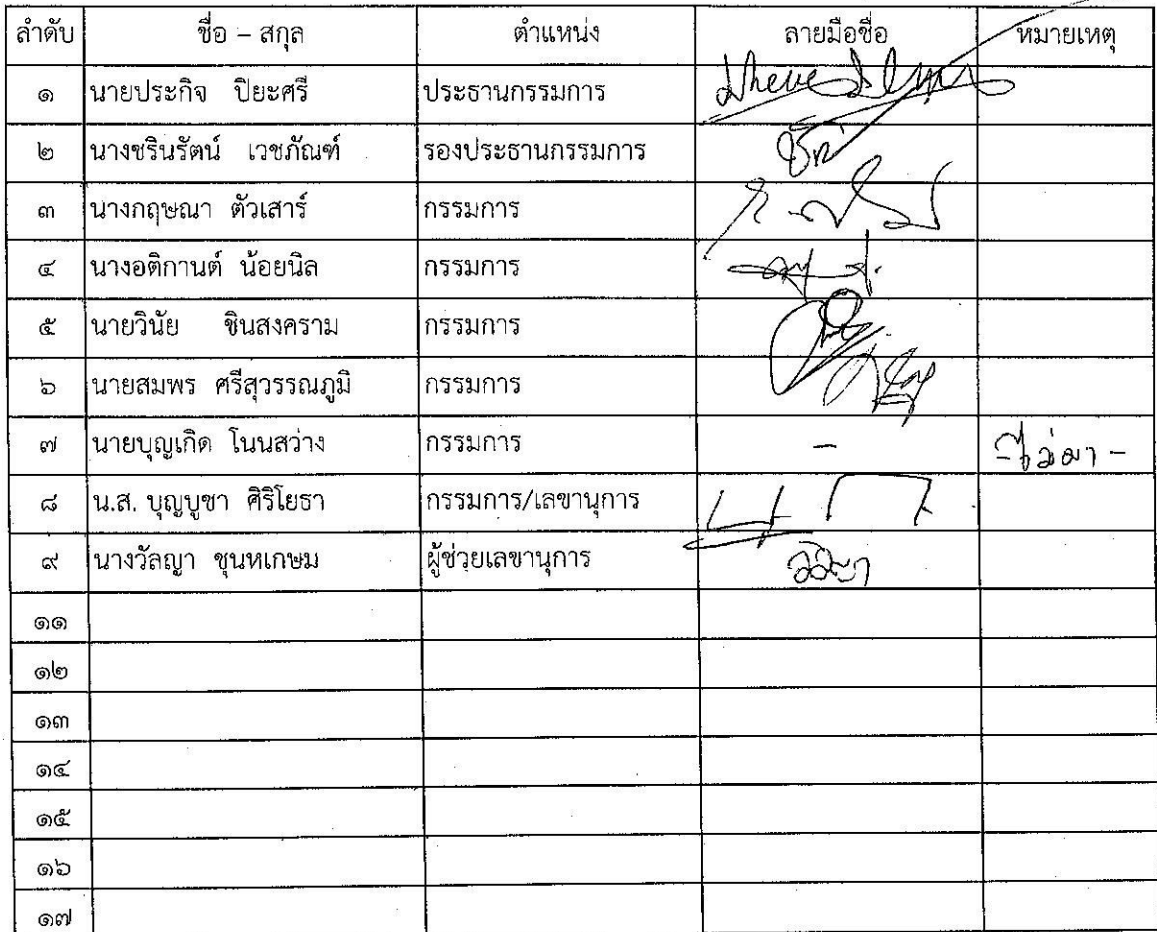 ลำดับ ชื่อ – สกุล ตำแหน่ง ลายมือชื่อ หมายเหตุ
๑ นายประกิจ ปิยะศรี ประธานกรรมการ
๒ นางชรินรัตน์ เวชภัณฑ์ รองประธานกรรมการ
๓ นางกฤษณา ตัวเสาร์ กรรมการ
๔ นางอติกานต์ น้อยนิล กรรมการ
๕ นายวินัย ชินสงคราม กรรมการ
๖ นายสมพร ศรีสุวรรณภูมิ กรรมการ
๗ นายบุญเกิด โนนสว่าง กรรมการ – -ไม่มา-
๘ น.ส. บุญบูชา ศิริโยธา กรรมการ/เลขานุการ
๙ นางวัลญา ชุนหเกษม ผู้ช่วยเลขานุการ
๑๑
๑๒
๑๓
๑๔
๑๕
๑๖
๑๗